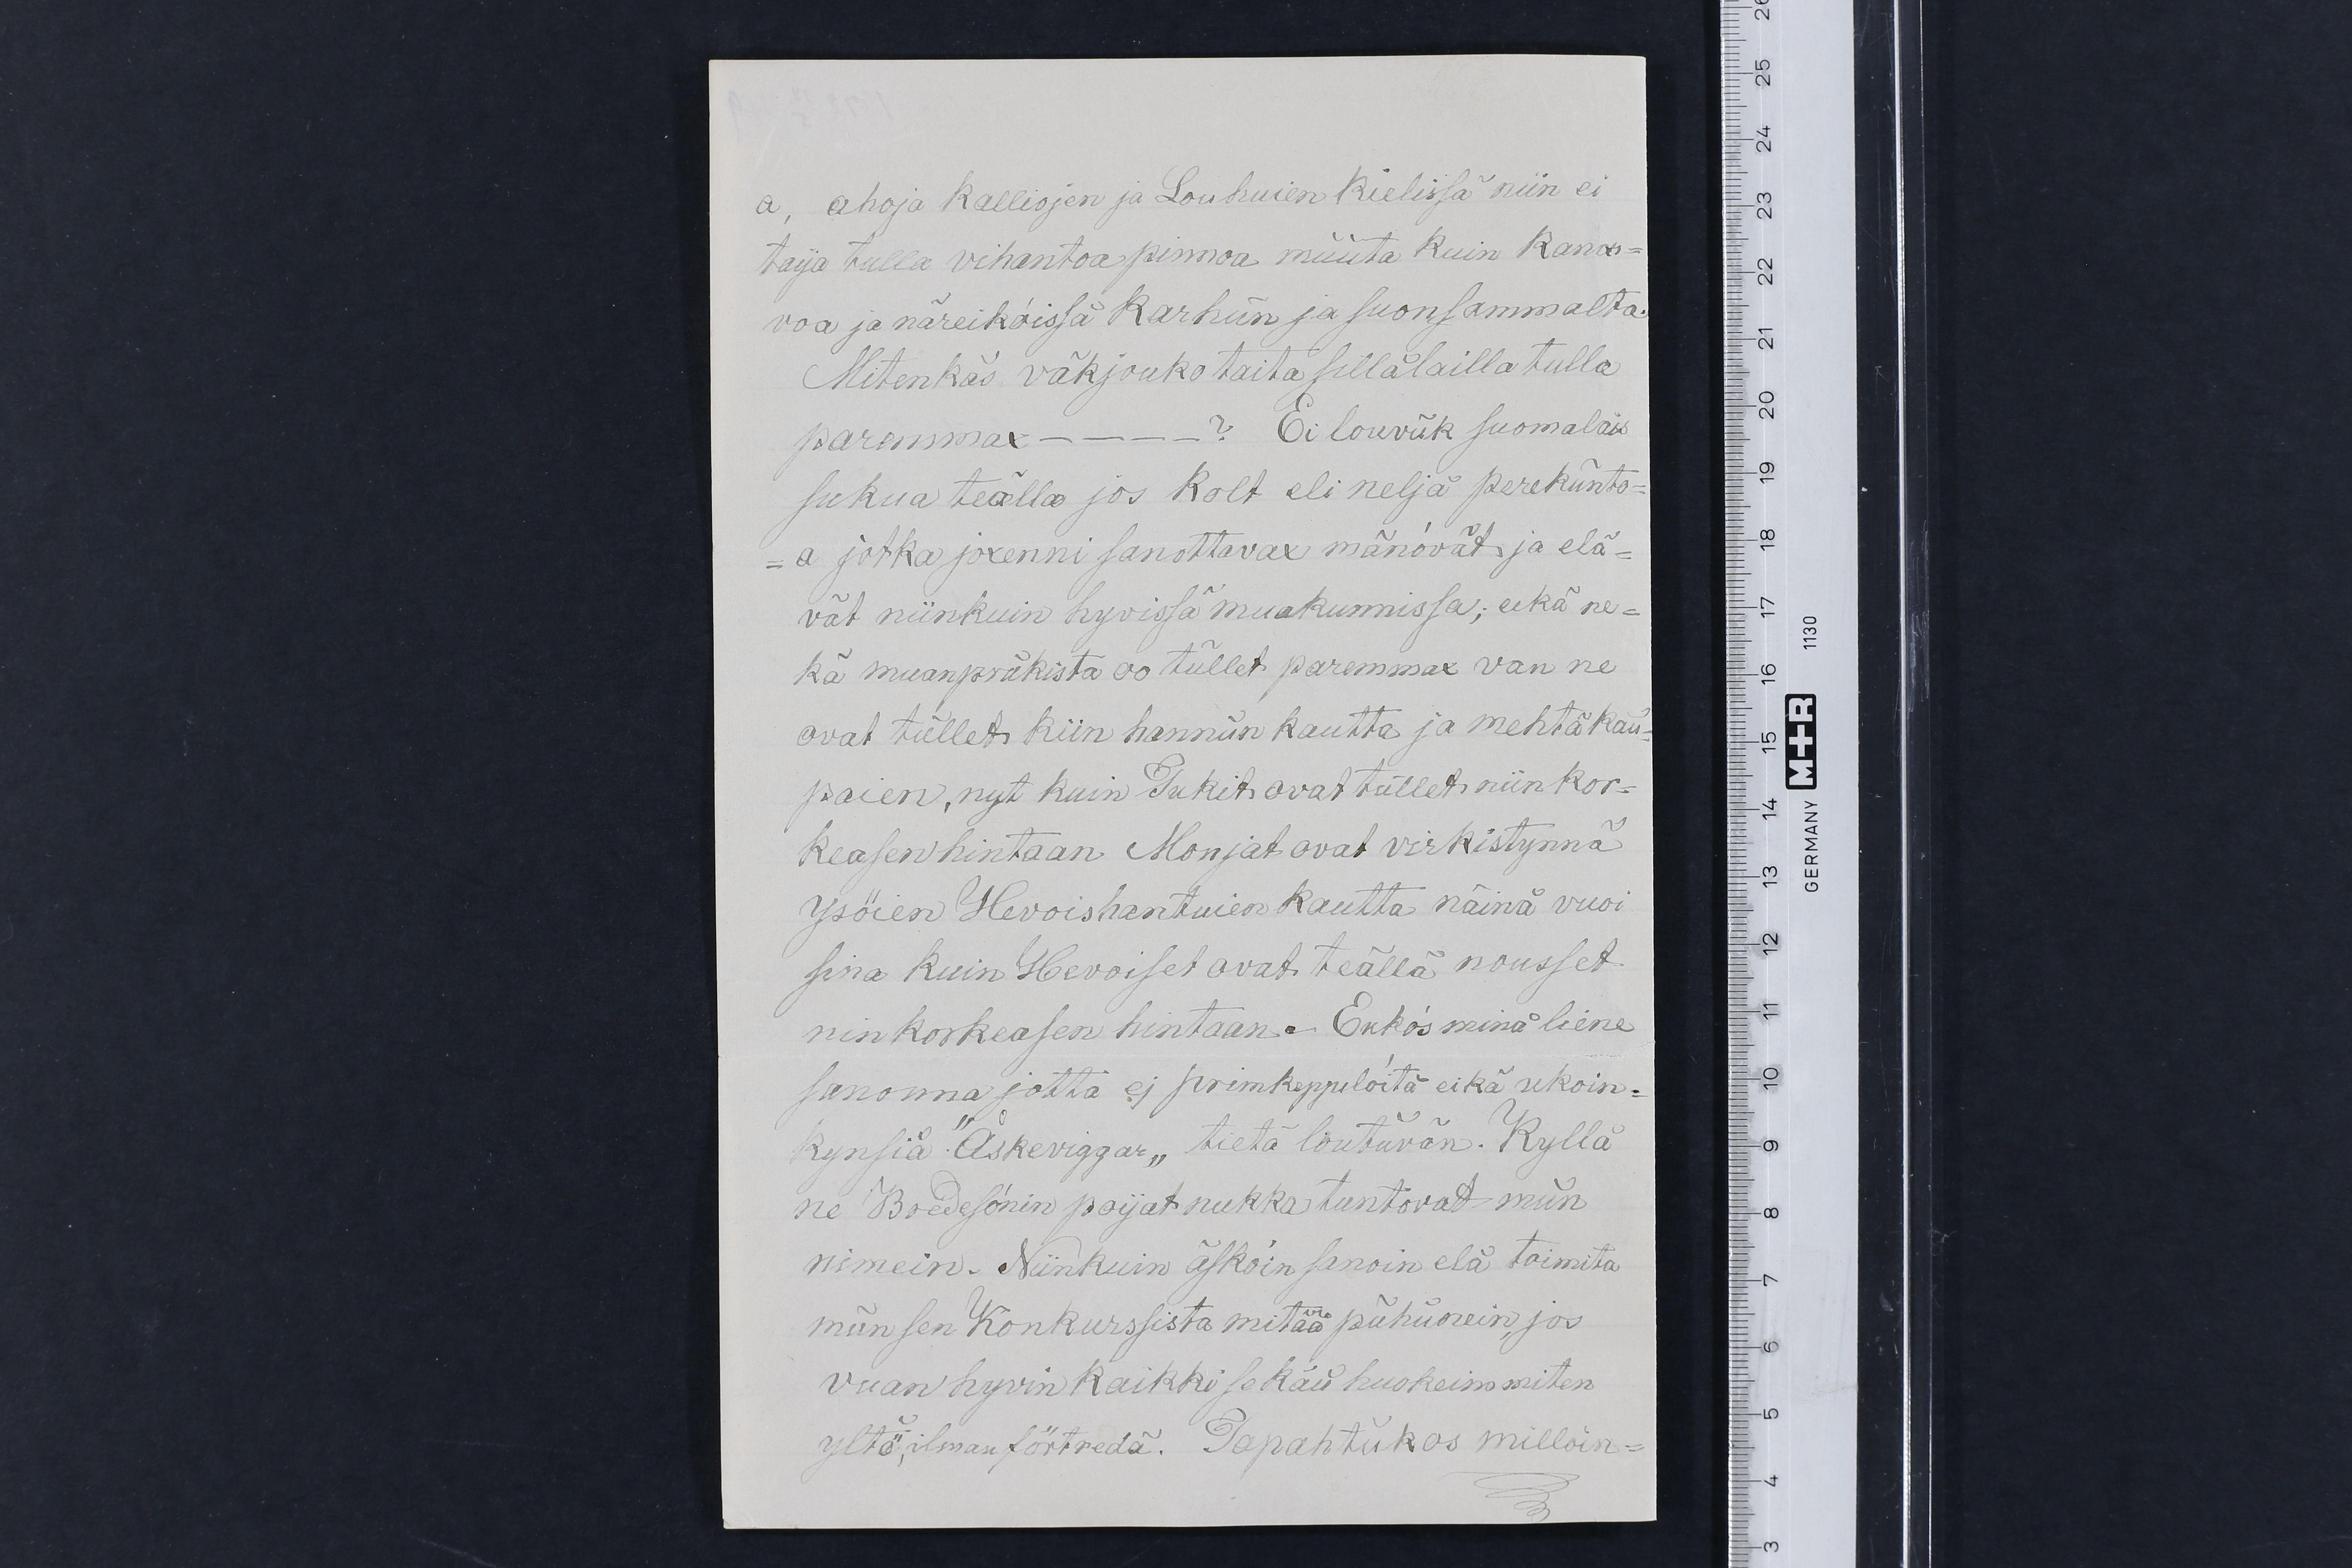 a, ahoja kalliojen ja Louhuien kielissä niin ei
taija tulla vihantoa pinnoa muuta kuin kanar=
voa ja näreiköissä karhun ja suonsammalta.
Mitenkäs väkjouko taitä sillälailla tulla
paremmax – – – – ? Ei louvük suomalais
sukua teälla jos kolt eli neljä perekünto=
=a jotka joxenni sanottavax mänövät ja elä=
vät niinkuin hyvissä muakunnissa; eikä ne=
kä muanpräkista oo tüllet paremmax van ne
ovat tüllet kiin hannün kautta ja mehtäkaü=
paien, nyt kuin Tukit ovat tüllet niin kor=
keasen hintaan Monjat ovat virkistynnä
ysöien Hevoishantuien kautta näinä vuoi
sina kuin Hevoiset ovat teällä nousset
nin korkeasen hintaan. Enkös minä liene
sanonna jotta ej primkeppilöitä eikä ukoin=
kynsiä "Åskeviggar„ tietä löutüvän. Kyllä
ne Bredesónin poijat nukka tuntovat mün
nimein. Niinkuin äsköin sanoin elä toimita
mün sen Konkurssista mitää pühünein, jos
vuan hyvin kaikki se käü huokeimmiten
yltö, ilman förtredä. Tapahtükos milloin=